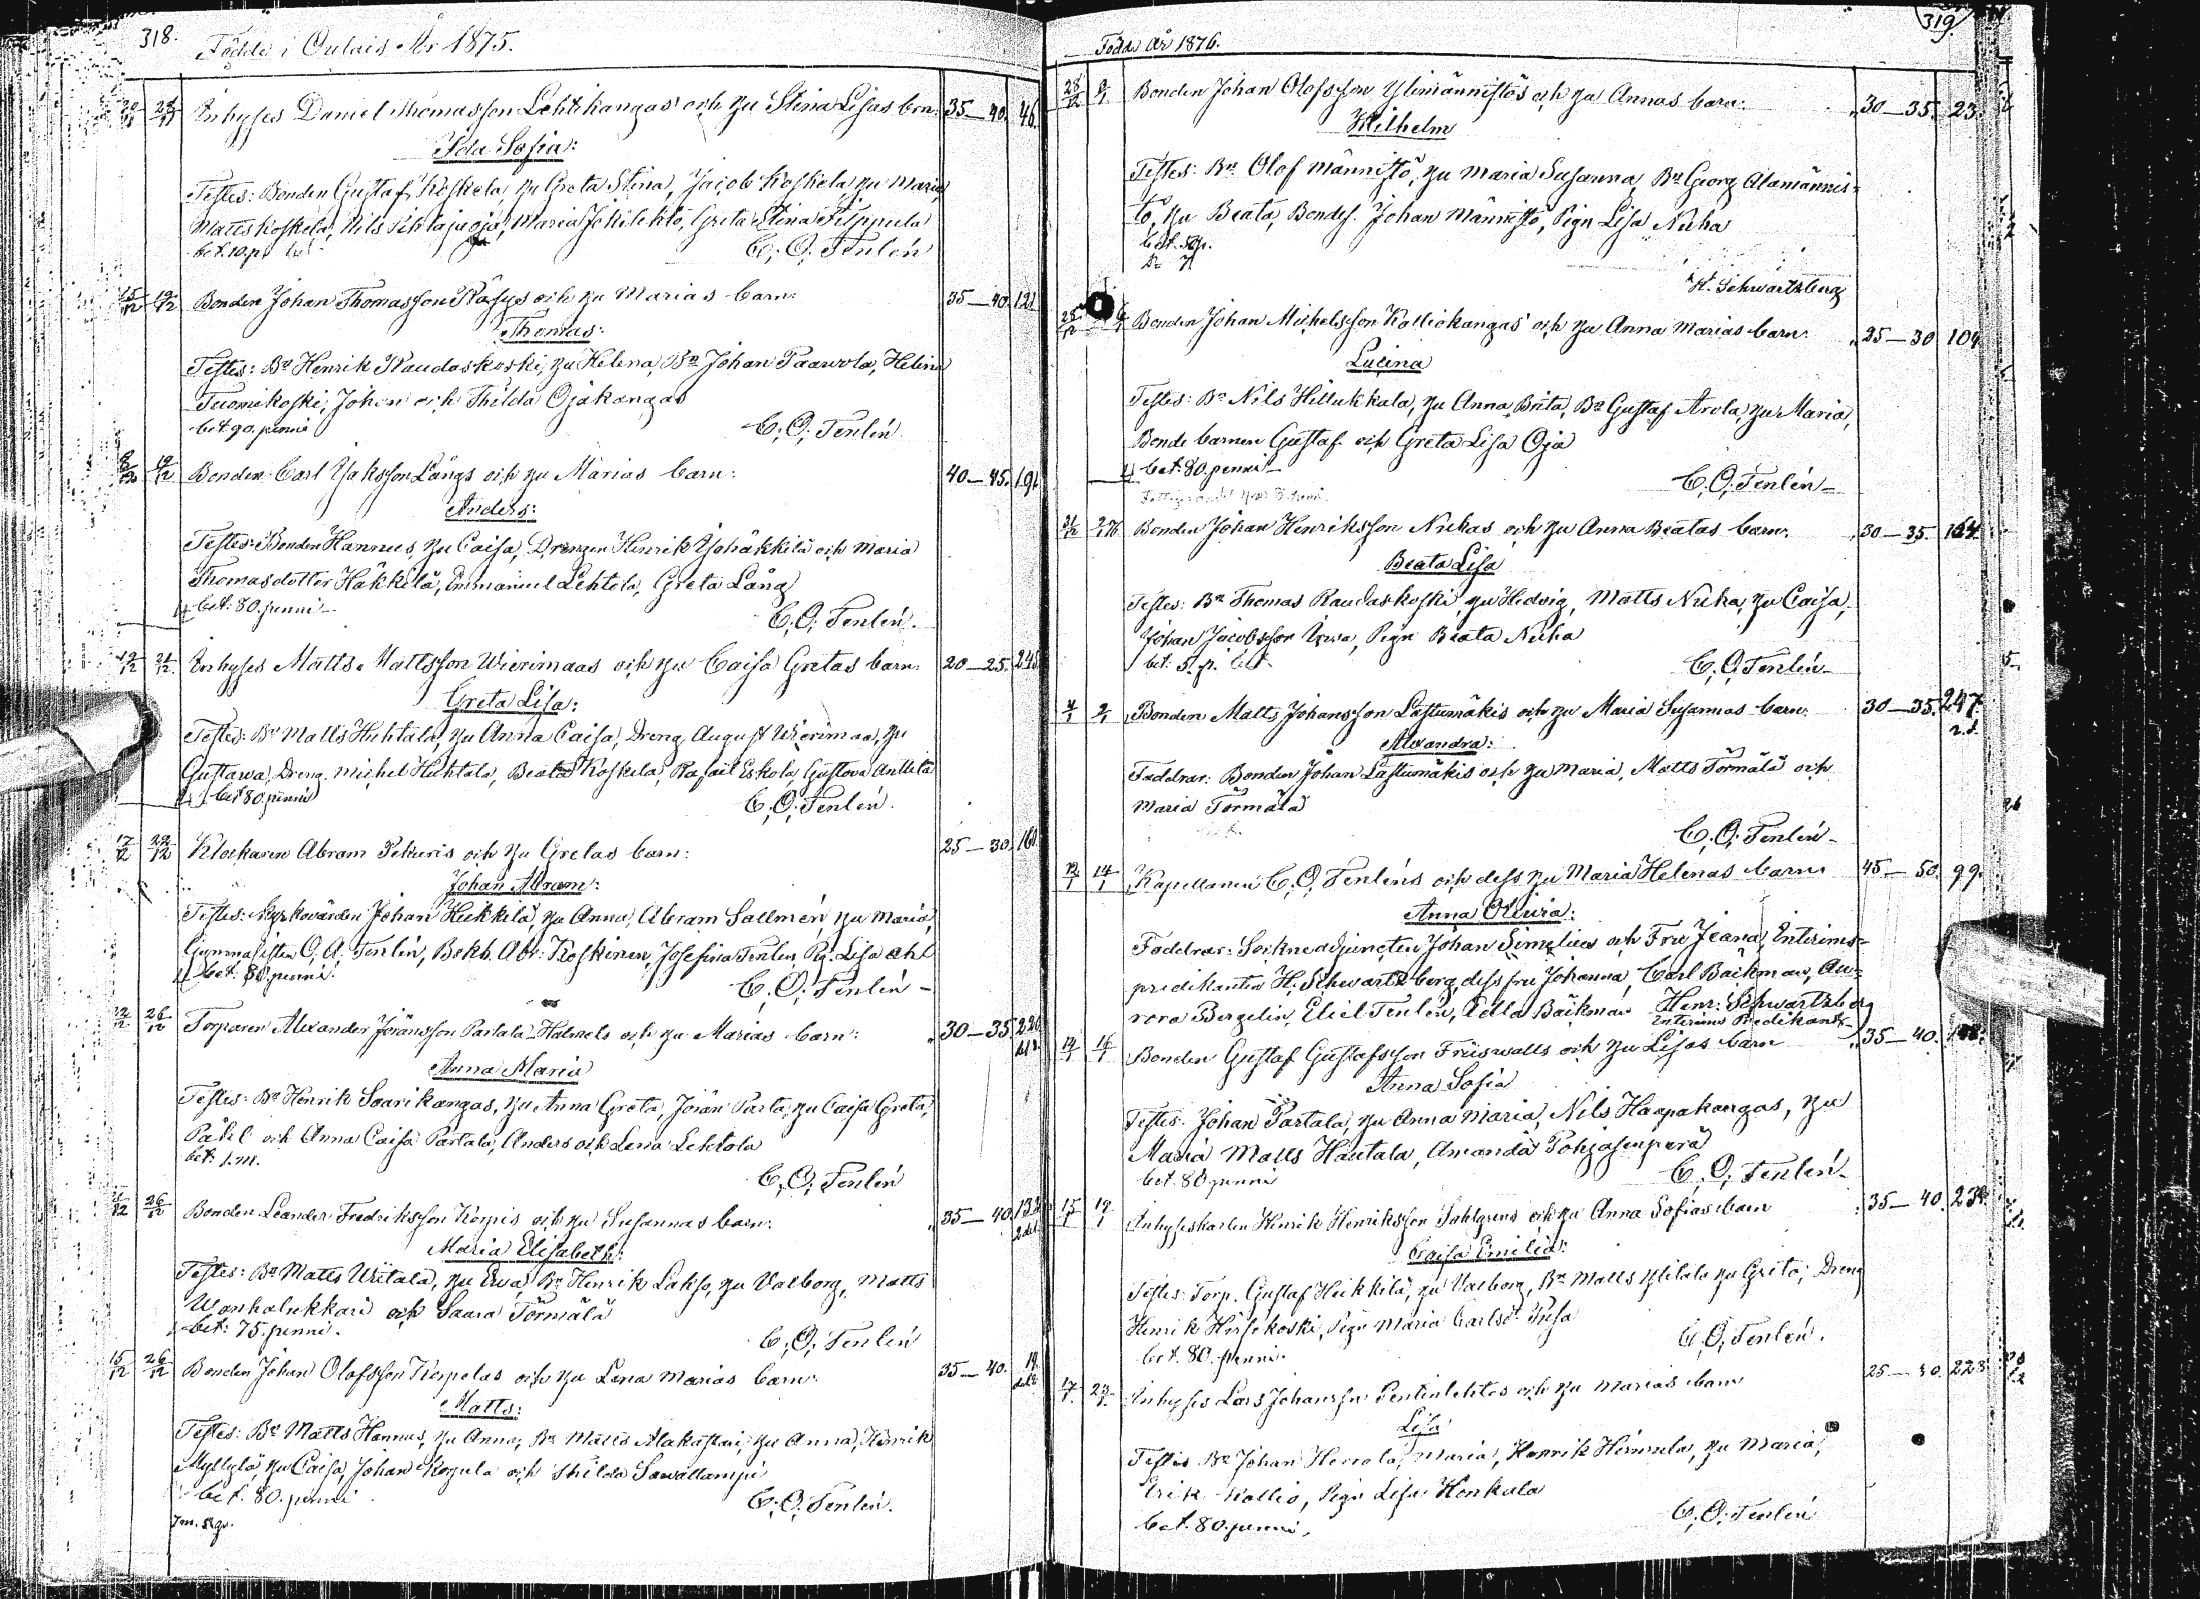 318.
Födde i Oulais År 1875.
Inhyses Daniel Thomasson Lehtikangas och hu Stina Lisas barn. 35–40. 46.
Ida Sofia:
Testes: Bonden Gustaf Koskela, hu Greta Stina, Jacob Koskela, hu Maria,
Matts Koskela, Nils Pihlajaoja, Maria Jokilehto, Greta Stina Filppula
bet. 10. p.
C. O. Tenlén
15/12 19/12 Bonden Johan Thomasson Räsys och hu Marias barn: 35–40. 121
Thomas:
Testes: Bn Henrik Raudaskoski, hu Helena, Bn Johan Paavola, Helena
Tuomikoski, Johan och Thilda Ojakangas
bet 90. penni
C. O. Tenlén
19/12 Bonden Carl Isaksson Längs och hu Marias barn: 40–45. 191
Anders:
Testes: Bonden Hannus, hu Caisa, Drengen Henrik Häkkilä och Maria
Thomasdotter Häkkilä, Emmanuel Lehtola, Greta Läng
bet: 80. penni
C. O. Tenlén.
19/12 21/12 Inhyses Matts Mattsson Wierimaas och hu Caisa Gretas barn: 20–25. 245
Greta Lisa:
Testes: Bn Matts Huhtala, hu Anna Caisa, Dreng August Wierimaa, hu
Gustawa, Dreng Michel Huhtala, Beata Koskela, Rafael Eskola, Gustava Anttila
bet 80. penni
C. O. Tenlén.
17/12 22/12 Klockaren Abram Pekuris och hu Gretas barn: 25–30. 161
Johan Abram:
Testes: Kyrkovärden Johan Heikkilä, hu Anna, Abram Sallmén, hu Maria,
Gymnasisten O. A. Tenlén, Bokh. Abr. Koskinen, Josefina Tenlén, Pig. Lisa Ahl
bet: 80. penni.
C. O. Tenlén
22/12 26/12 Torparen Alexander Jöransson Partala-Holmels och hu Marias barn: 30–35.
Anna Maria
Testes: Bn Henrik Saarikangas, hu Anna Greta, Jöran Parta, hu Caisa Greta,
och Anna Caisa Partala, Anders och Lena Lehtola
bet: 1. m.
C. O. Tenlén
26/12 Bonden Leander Fredriksson Korpis och hu Susannas barn: 35–40.
Maria Elisabeth:
Testes: Bn Matts Uitala, hu Ewa, Bn Henrik Lakso, hu Valborg, Matts
Wanhalukkari och Saara Törmälä
bet: 75. penni.
C. O. Tenlén
15/12 26/12 Bonden Johan Olafsson Korpelas och hu Lena Marias barn: 35–40.
Matts:
Testes: Bn Matts Hannus, hu Anna, Bn Matts Alakastari, hu Anna, Henrik
Myllylä, hu Caisa, Johan Korpula och Thilda Sawallampi
bet. 80. penni
C. O. Tenlén.
319.
Födde År 1876.
Bonden Johan Olofsson Ylimännistös och hu Annas barn: 30–35. 23.
Wilhelm
Testes: Bn Olof Männistö, hu Maria Susanna, Bn Georg Alamännis-
tö, hu Beata, Bondes. Johan Männistö, Pign Lisa Nuha
H. Schwartzberg
Bonden Johan Michelsson Kalliokangas och hu Anna Marias barn: 25–30 104
Lucina
Testes: Bn Nils Hillukkala, hu Anna Brita, Bn Gustaf Arola, hu Maria,
Bonde barnen Gustaf och Greta Lisa Oja
bet: 80. penni
C. O. Tenlén
31/12 Bonden Johan Henriksson Nuhas och hu Anna Beatas barn. 30–35. 164.
Beata Lisa
Testes: Bn Thomas Raudaskoski, hu Hedvig, Matts Nuha, hu Caisa,
Johan Jacobsson Pign Beata Nuha
C. O. Tenlén
Bonden Matts Johansson Lastumäkis och hu Maria Susannas barn. 30–35. 247
Alexandra:
Faddrar: Bonden Johan Lastumäkis och hu Maria, Matts Törmälä och
Maria Törmälä
C. O. Tenlén
14/1 Kapellanen C. O. Tenléns och dess hu Maria Helenas barn 45–50. 99.
Anna Olivia:
Faddrar: Sockneadjuncten Johan Simelius och Fru Jeana, Interims-
predikanten H. Schwartzberg, dess fru Johanna, Carl Bäckman, Au-
rora Bergelin, Eliel Tenlén, Adla Bäckman Henr: Schwartzberg
Interims Predikant
14/1 16/1 Bonden Gustaf Gustafsson Friiswalls och hu Lisas barn 35–40.
Anna Sofia
Testes. Johan Partala, hu Anna Maria, Nils Haapakangas, hu
Maria Matts Hautala, Amanda Pohjasenperä
bet. 80. penni
C. O. Tenlén
15/1 19/1 Inhyseskarlen Henrik Henriksson Sahlgrens och hu Anna Sofias barn 35–40.
Caisa Emilia:
Testes: Torp. Gustaf Heikkilä, hu Valborg, Bn Matts Ylitalo hu Greta, Dreng
Henrik Hirsikoski, Pign Maria Carlsd.
bet. 80. penni.
C. O. Tenlén.
17/1 23/1 Inhyses Lars Johansson Pentinlehtos och hu Marias barn 25–30. 223
Lisa
Testes Bn Johan Herrala, Maria, Henrik Himmela, hu Maria,
Erik Kallio, Pign Lisa Honkala
bet. 80. penni.
C. O. Tenlén